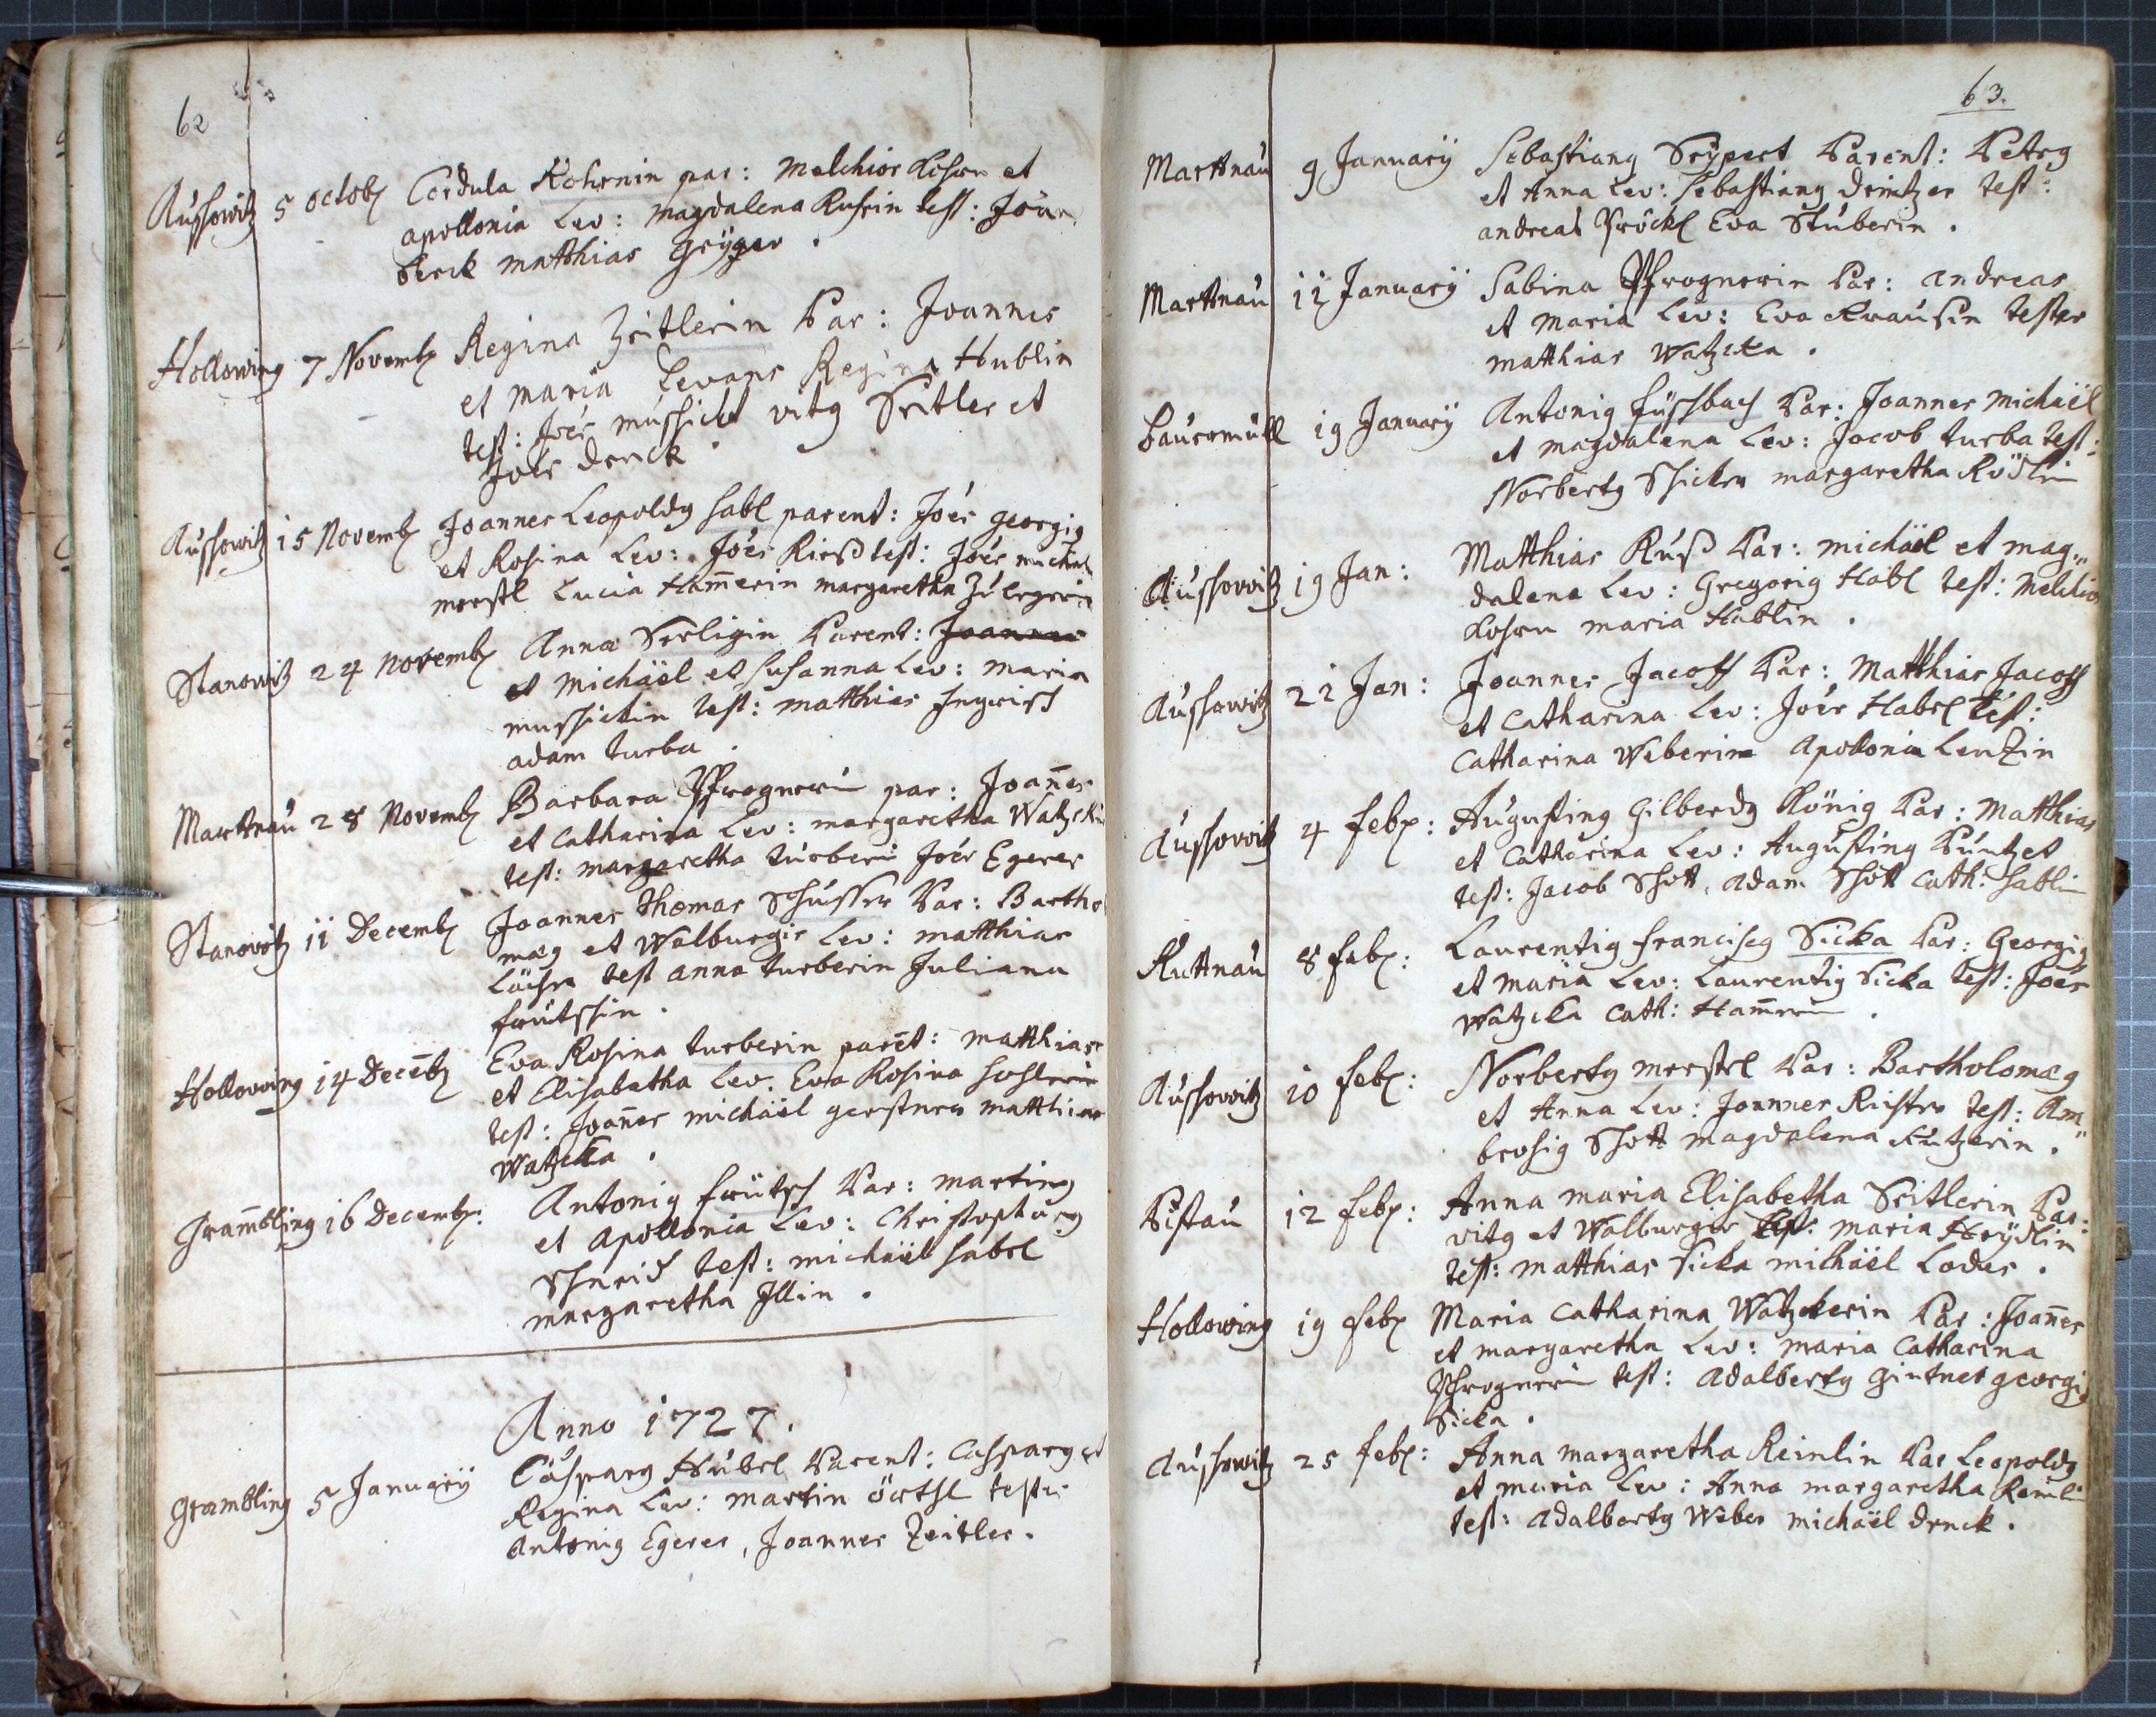 62
Aussowitz 5 octob Cordula Kohrnin par: Melchior Kohrn et
apollonia Lev: Magdalena Rusin test: Joan
Denck matthias Geÿger.
Hollowing 7 Novemb Regina Zeitlerin Par: Joannes
et maria Levans Regina Hublin
test: Joes mussickl vitg Seitler et
Joes Denck
Aussowitz 15 Novemb Joannes Leopoldg habl parent: Joes georgig
et Rosina Lev: Joes Rieß test: Joes michael
merstl Lucia Hamerin margaretha
Stanowitz 24 Novemb Anna Serligin Parent: Joannes
et Michäel et Susanna Lev: maria
mussickin test: matthias
adam turba.
Marttnau 28 Novemb Barbara Pfrognerin par: Joanes
et Catharina Lev: margaretha Watzckin
test: margaretha turberin Joes Egerer
Stanowitz 11 Decemb Joannes Thomas Schuster Par: Bartho
mæg et Walburgis Lev: matthias
test anna turberin Juliana
Hollowing 14 Decēb Eva Rosina turberin parēt: matthias
et Elisabetha Lev: Eva Rosina
test: Joanes michäel gerstner matthias
Watzcka.
Grambling 16 Decemb: Antonig Fritsch Par: marting
et Apollonia Lev: Christophorg
Schmid test: michäel habel
margaretha Illin.
Anno 1727.
Grambling 5 Januarÿ Casparg Hübel Parent: Casparg et
Regina Lev: martin örtl testes
Antonig Egerer, Joannes Zeitler.
63.
Marttnau 9 Januarÿ Sebastiang Seÿpert Parent: Petrg
et Anna Lev: Sebastiang Drintzer test:
andreas Pröckl Eva Stuberin.
Marttnau 12 Januarÿ Sabina Pfrognerin Par: andreas
et maria Lev: Eva Krausin testes
matthias Watzcka.
Baurmüll 19 Januarÿ Antonig Füssbach Par: Joannes michäel
et magdalena Lev: Jacob turba test:
Norbertg Sicka margaretha Rödlin
Aussowitz 19 Jan: Matthias Ruß Par: michäel et mag„
dalena Lev: Gregorig Habl test: Melchior
Kohrn maria Hablin.
Aussowitz 22 Jan: Joannes Jacoff Par: Matthias Jacoff
et Catharina Lev: Joes Habel test:
Catharina Weberin Apollonia Lentzin
Aussowitz 4 Feb: Augusting Gilberdg König Par: Matthias
et Catharina Lev: Augusting
test: Jacob Schott, adam Schott Cath: hablin
Kuttnau 8 Feb: Laurentig Franciscg Sicka Par: Georgig
et maria Lev: Laurentig Sicka test: Joes
Watzcka Cath: Hamerin.
Aussowitz 10 Feb: Norbertg merstl Par: Bartholomæg
et Anna Lev: Joannes Richter test: Am„
brosig Schott magdalena Kutzerin.
Pistau 12 Feb: Anna maria Elisabetha Seitlerin Par:
vitg et Walburgis Lev: maria Heÿdlin
test: matthias Sicka michäel Loder.
Hollowing 19 Feb Maria Catharina Watzckerin Par: Joanes
et margaretha Lev: maria Catharina
Pfrognerin test: Adalbertg Gintner georgig
Sicka.
Aussowitz 25 Feb: Anna margaretha Reinlin Par Leopoldg
et maria Lev: Anna margaretha Reinlin
test: Adalbertg Weber michäel Denck.